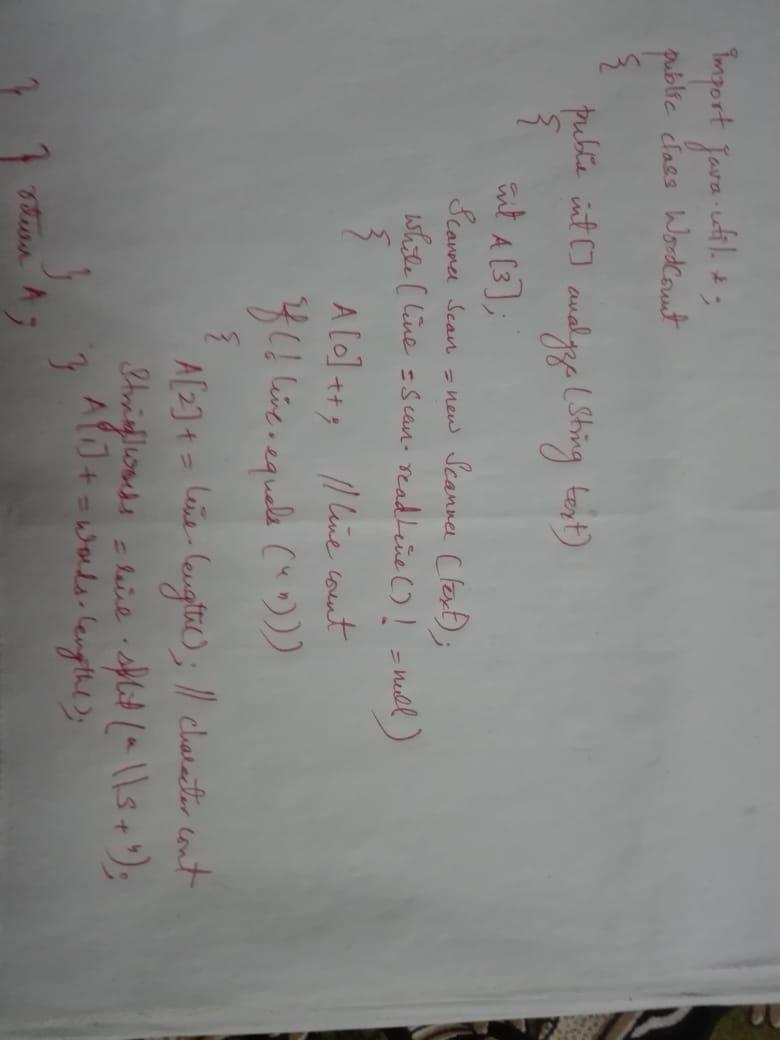 import java.util.*;
public class WordCount
{
public int[] analyze(String text)
{
int A[3];
Scanner scan = new Scanner (text);
while(line = scan.readLine() != null)
{
A[0]++; //line count
if(!line.equals("")))
{
A[2]+=line.length(); // character cont
String[]words = line.split("\\s+");
A[1]+=words.length();
}
}
return A;
}
}